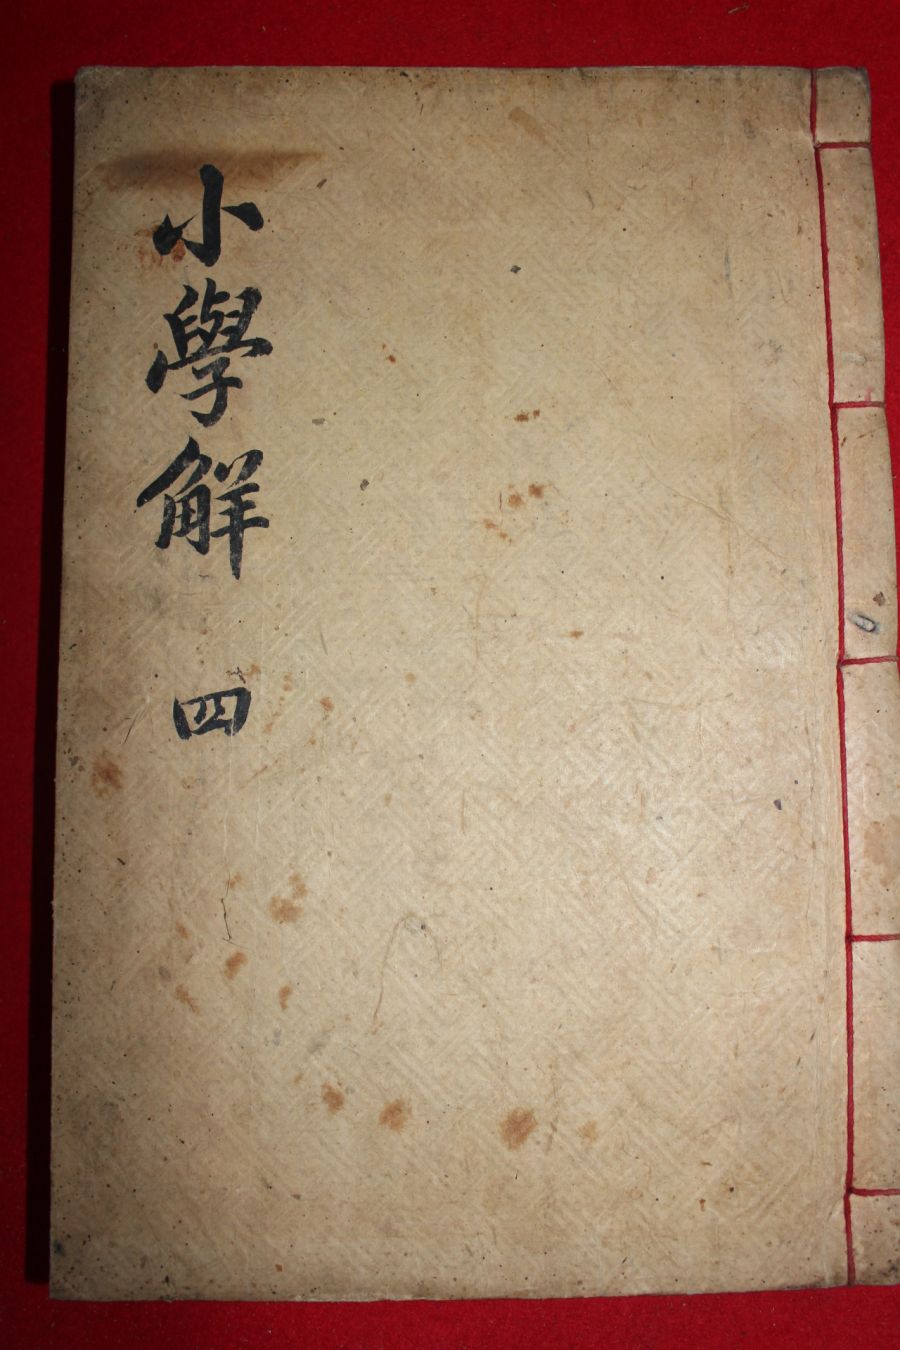 小學解 四